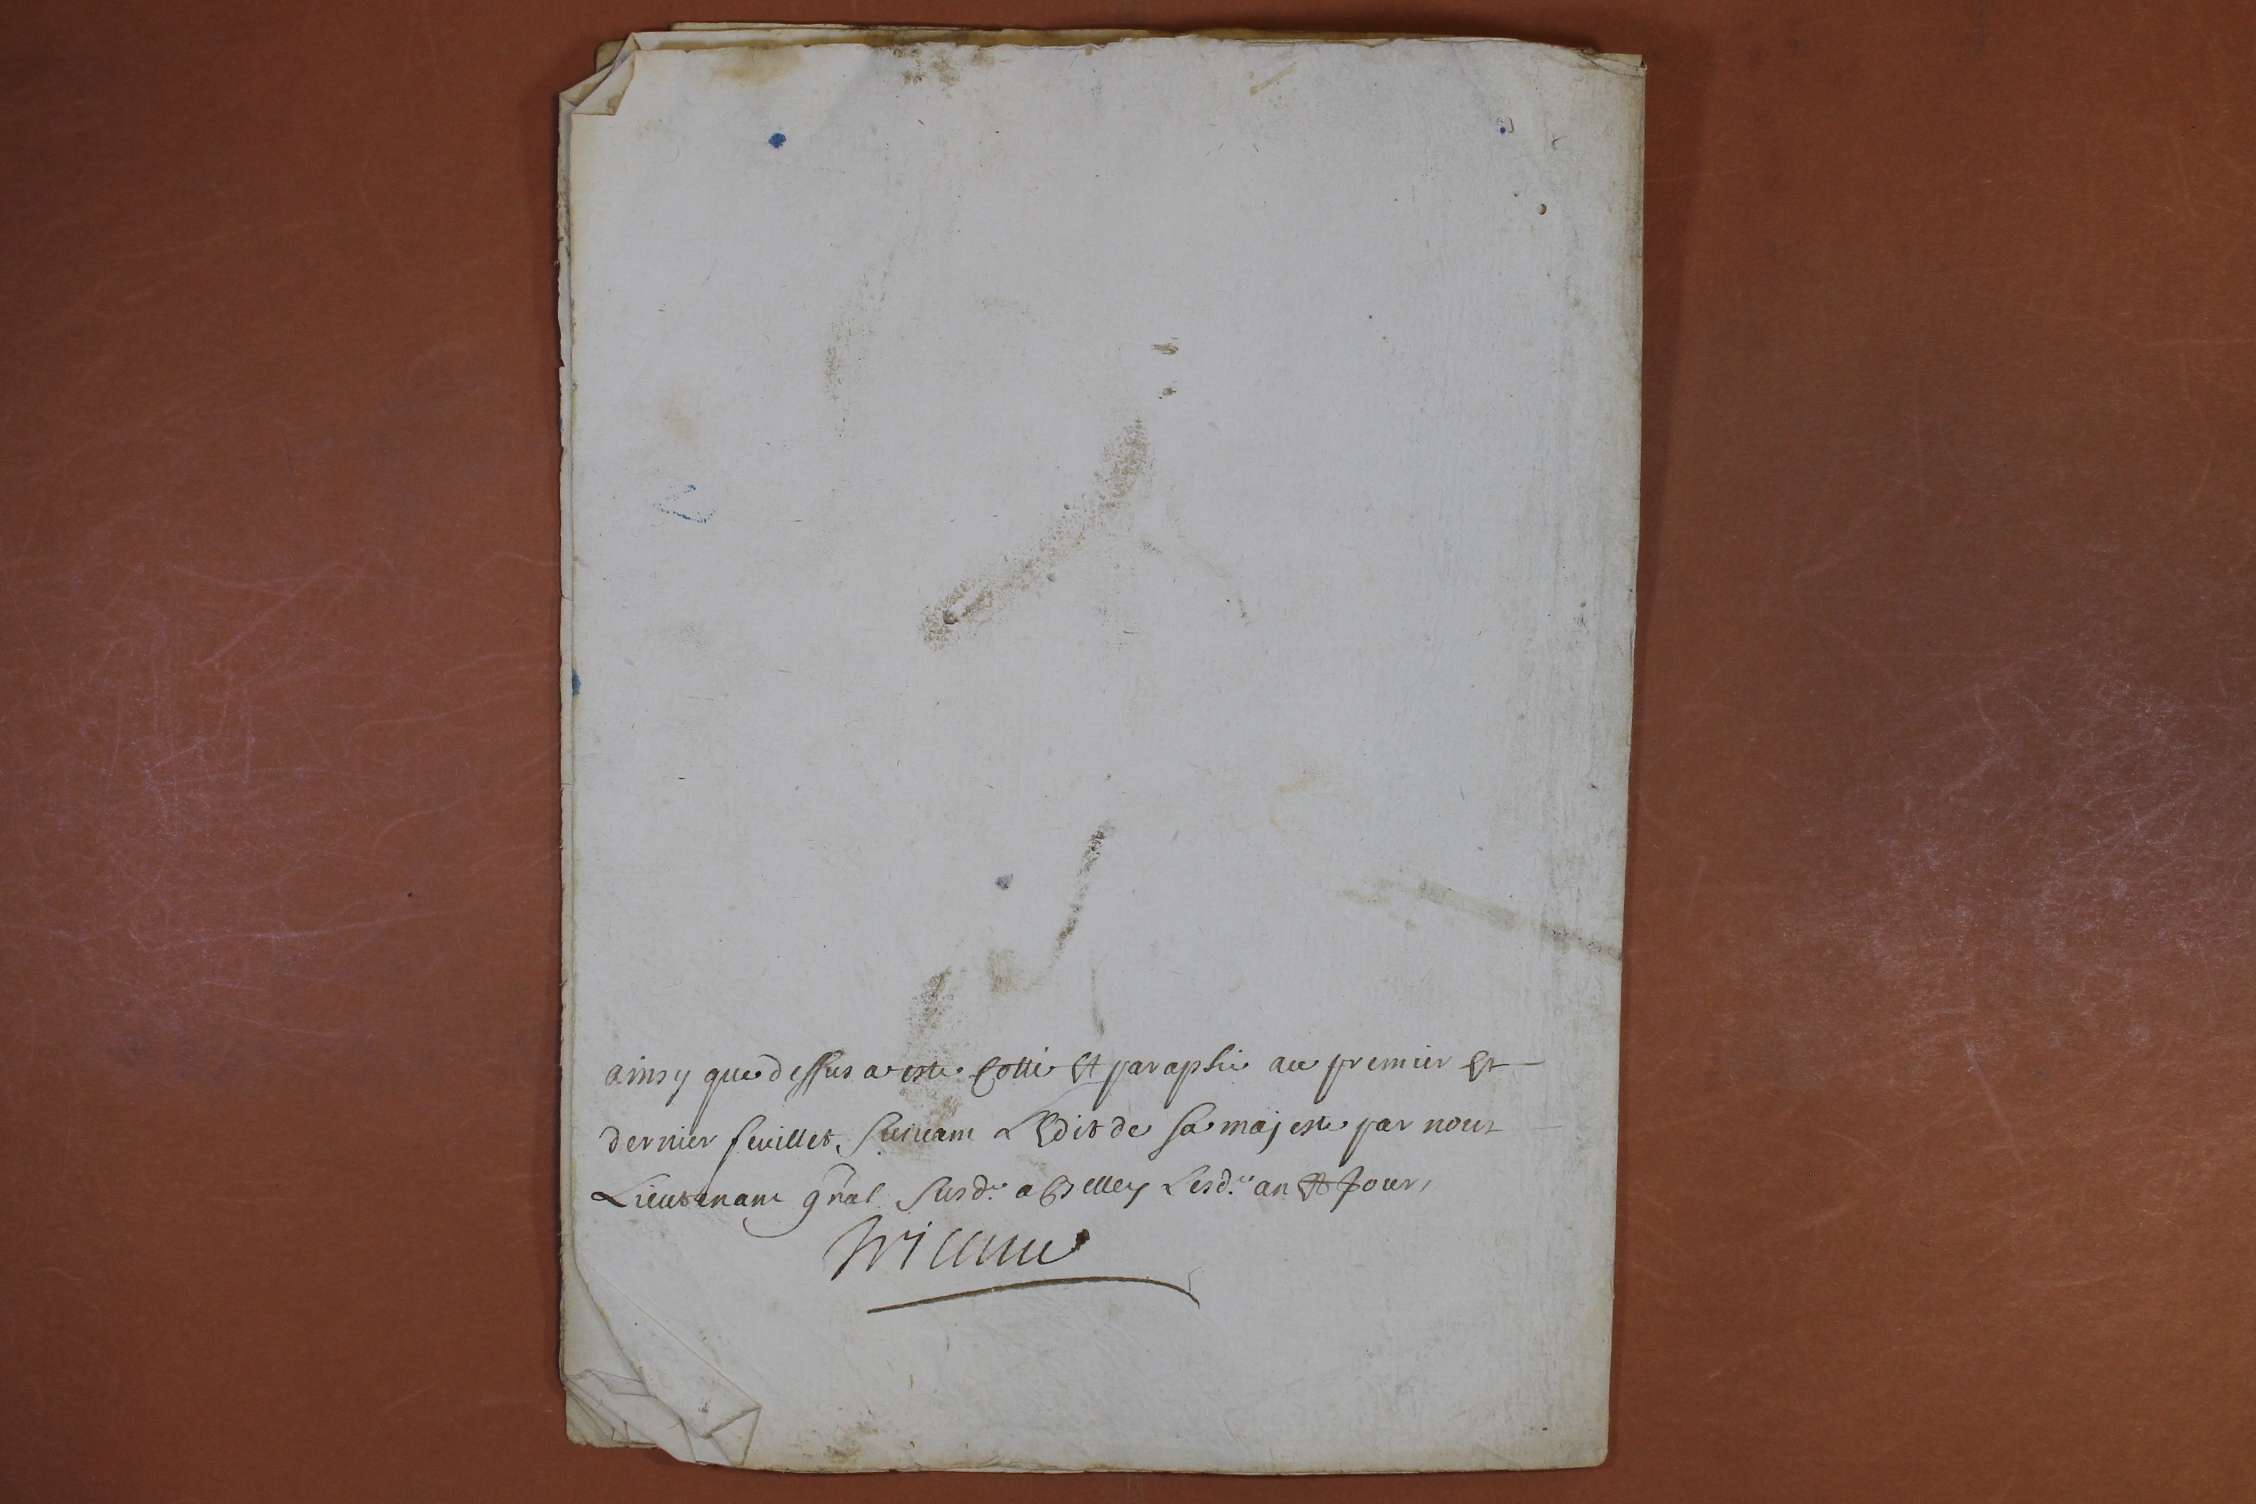 ainsy que dessus a este Cotté Et paraphé au premier Et
dernier feuillet, Suiuant L'Edit de sa majesté par nous
Lieutenant gñal Susd.t a Belley Lesd.ts an Et Jour,